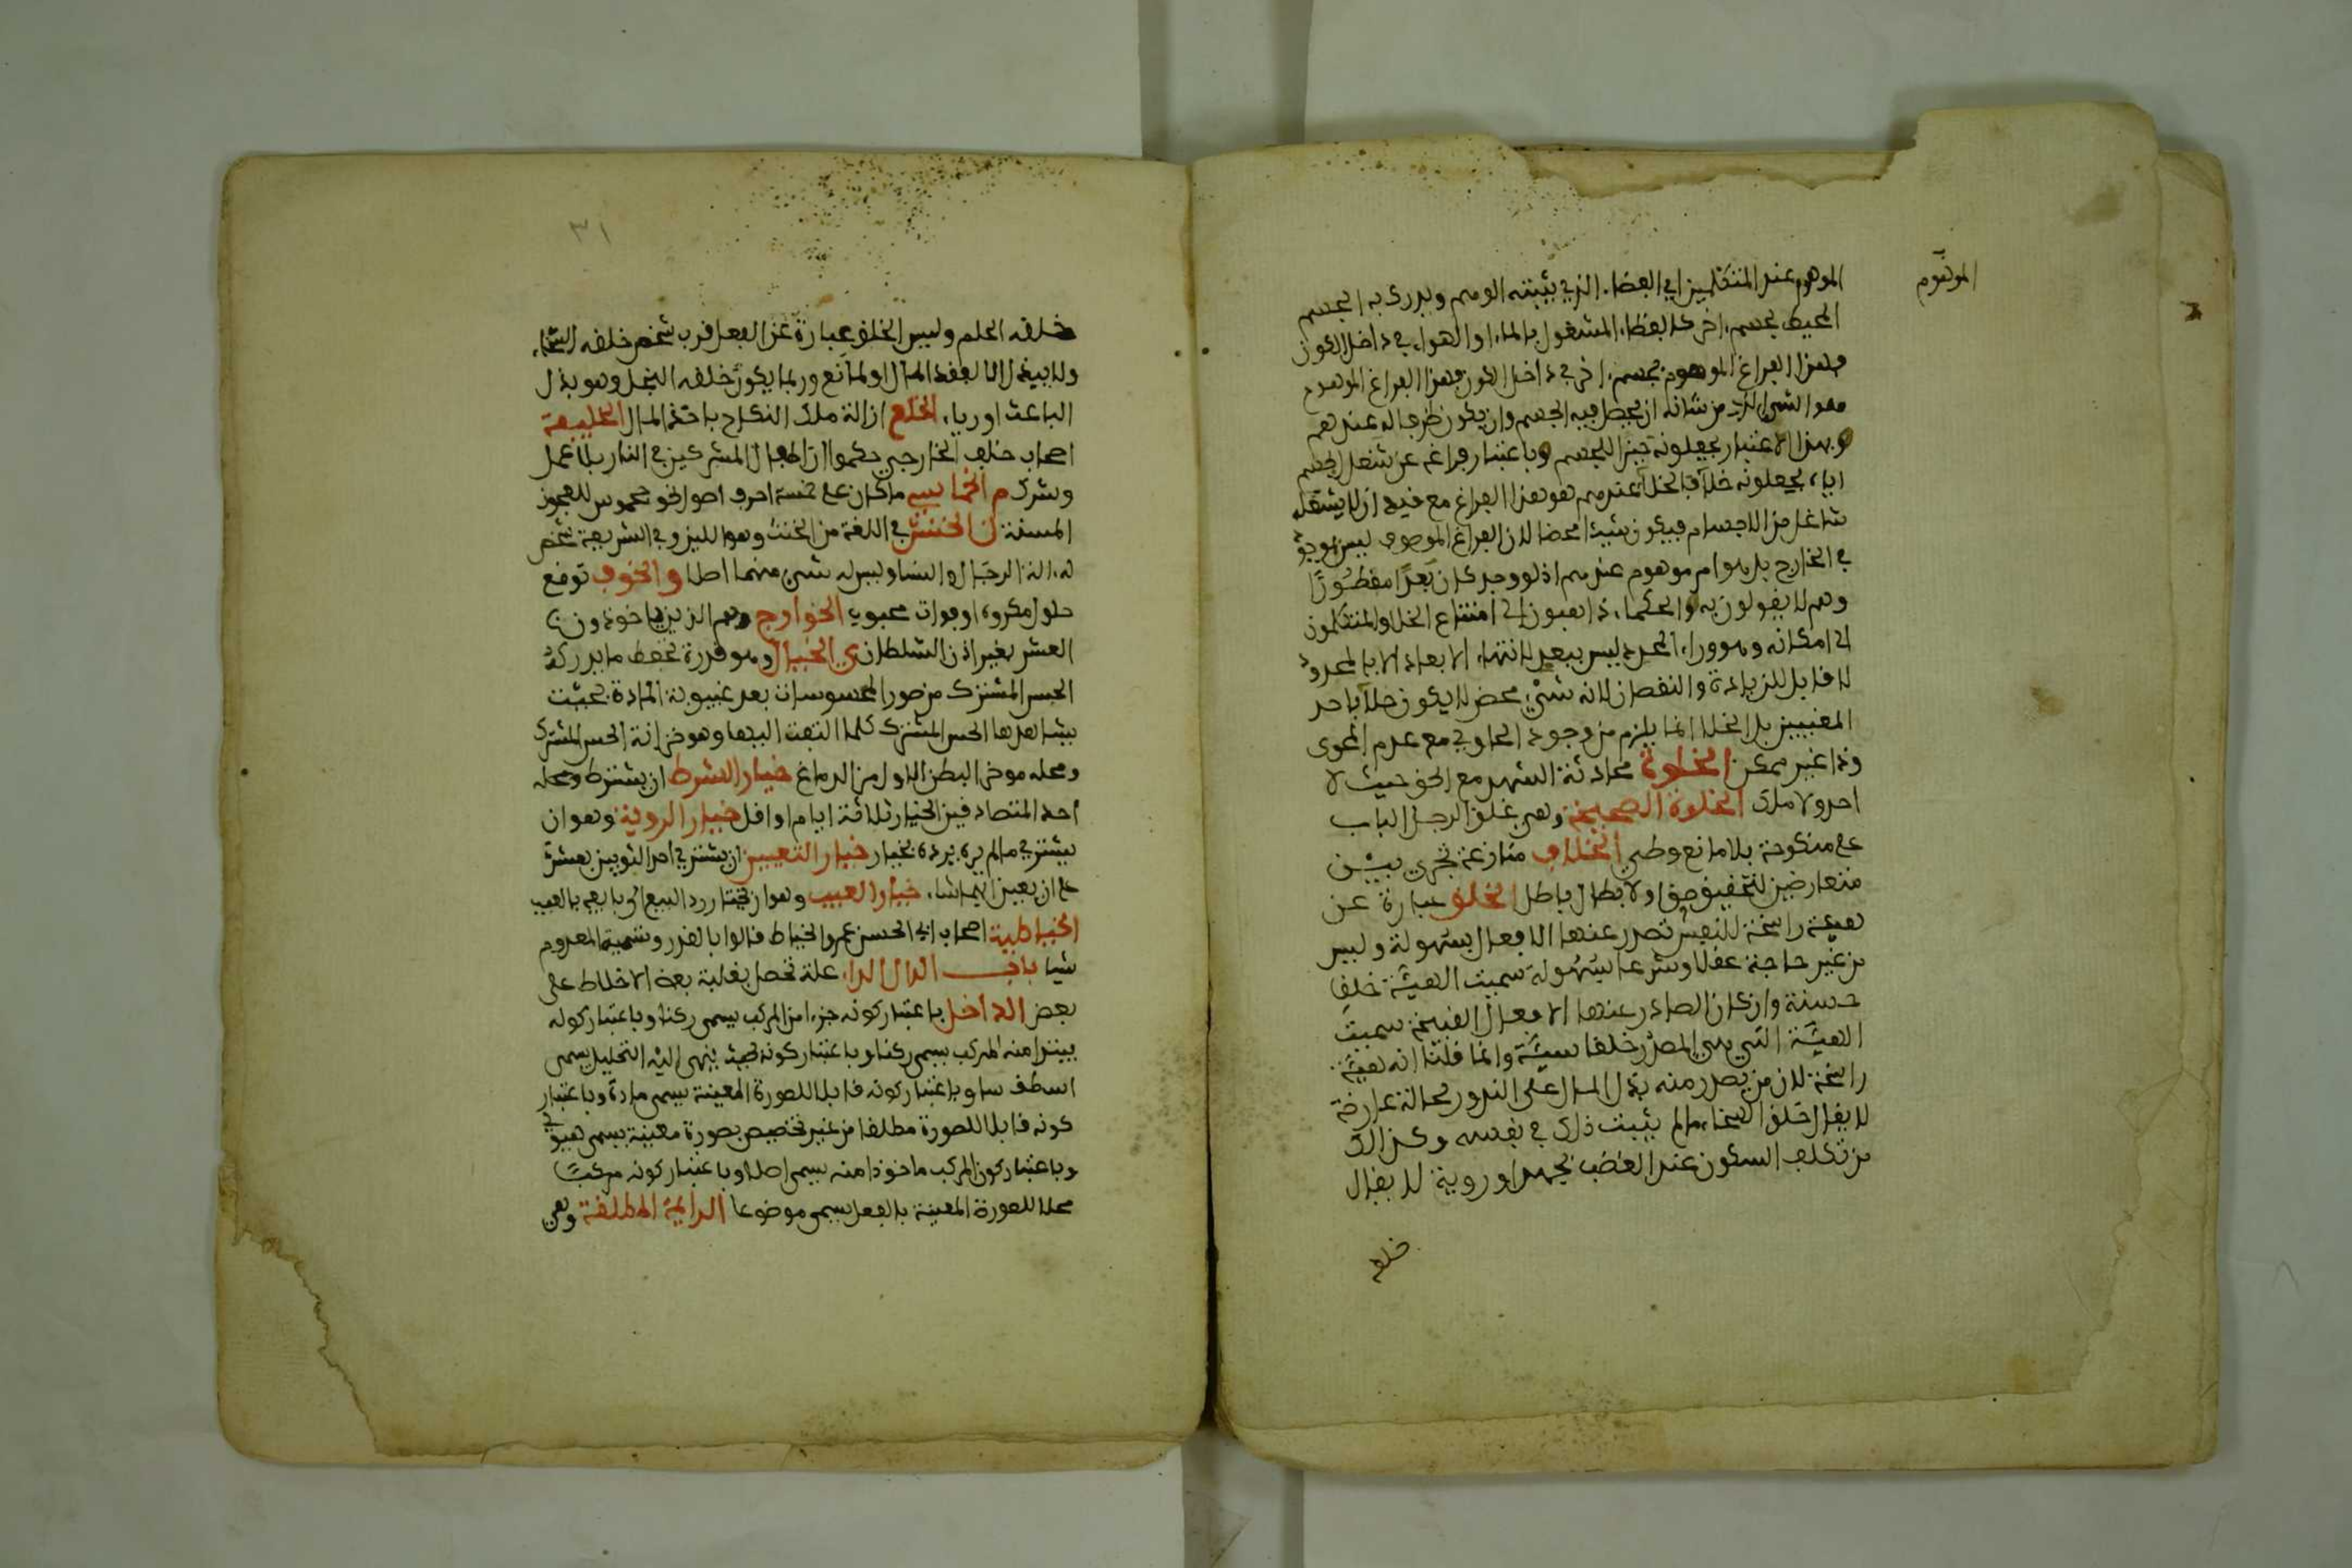 الموهوم عند المتكلمين اي الفضاء الذي يثبته الوهم ويدرك به الجسم
الموهوم
المحيط بجسم اخر كالفضاء المشغول بالماء او الهواء في داخل الكوز
فهذا الفراغ الموهوم بجسم اخر في داخل الكوز فهذا الفراغ الموهوم
هو الشيء الذي من شانه ان يحصل فيه الجسم وان يكون ظرفا له عندهم
وبهذا الاعتبار يجعلونه حيزا للجسم وباعتبار فراغه عن شغل الجسم
اياه يجعلونه خلآ فالخلآ عندهم هو هذا الفراغ مع قيد ان لا يشغله
شاغل من الاجسام فيكون شيئا محضا لان الفراغ الموهوم ليس بموجود
في الخارج بل هو امر موهوم عندهم اذ لو وجد كان بعدًا مفطورًا
وهم لا يقولون به والحكماء ذاهبون الى امتناع الخلا والمتكلمون
الى امكانه وما وراء المحدد ليس ببعد لانتهاء الابعاد الا بالمحدود
لا قابل للزيادة والنقصان لانه شيء محض لا يكون خلآ باحد
المعنيين بل الخلا انما يلزم من وجود الحاوي مع عدم المحوى
وذا غير ممكن الخلوة محادثة السر مع الحق حيث لا
احد ولا ملك الخلوة الصحيحة وهي غلق الرجل الباب
على منكوحة بلا مانع وطي الخلاف منازعة تجري بين
متعارضين لتحقيق حق او لابطال باطل الخلق عبارة عن
هيئة راسخة للنفس تصدر عنها الافعال بسهولة وليس
من غير حاجة عقلا وشرعا بسهولة سميت الهيئة خلقا
حسنة وان كان الصادر عنها الافعال القبيحة سميت
الهيئة التي هي المصدر خلقا سيئة وانما قلنا انه هيئة
راسخة لان من يصدر منه بذل المال على الندور بحالة عارضة
لا يقال خلقه السخاء ما لم يثبت ذلك في نفسه وكذلك
من تكلف السكون عند الغضب بجهد او روية لا يقال
خلقه
٣١
خلقه الحلم وليس الخلق عبارة عن الفعل فرب شخص خلقه السخاء
ولا يبذل اما لفقد المال او لمانع وربما يكون خلقه البخل وهو يبذل
لباعث او رياء الخلع ازالة ملك النكاح باخذ المال الخليفة
اصحاب خلف الخارجي حكموا ان اطفال المشركين في النار بلا عمل
وشرك م الخماسي ما كان على خمسة احرف اصول نحو جحموش للعجوز
المسنة ن الخنثى في اللغة من الخنث وهو اللين وفي الشريعة شخص
له الة الرجال والنسا وليس له شيء منهما اصلا و الخوف توقع
حلول مكروه او فوات محبوب الخوارج وهم الذين ياخذون
العشر بغير اذن السلطان ي الخيال وهو قوة تحفظ ما يدركه
الحس المشترك من صور المحسوسات بعد غيبوبة المادة بحيث
يشاهدها الحس المشترك كلما التفت اليها وهو خزانة الحس المشترك
ومحله موخر البطن الاول من الدماغ خيار الشرط ان يشترط ومحله
احد المتعاقدين الخيار ثلاثة ايام او اقل خيار الروية وهو ان
يشتري ما لم يره يرده بخيار خيار التعيين ان يشتري احد الثوبين بعشرة
على ان يعين ايهما شاء خيار العيب وهو ان يختار رد المبيع الى بايعه بالعيب
الخياطية اصحاب ابي الحسن عمرو الخياط قالوا بالقدر وتسمية المعدوم
شيا باب الدال الداء علة تحصل بغلبة بعض الاخلاط على
بعض الداخل باعتبار كونه جزءا من المركب يسمى ركنا وباعتبار كونه
يبتدا منه المركب يسمى ركنا وباعتبار كونه بحيث ينتهي اليه التحليل يسمى
اسطقسا وباعتبار كونه قابلا للصورة المعينة يسمى مادة وباعتبار
كونه قابلا للصورة مطلقا من غير تخصيص بصورة معينة يسمى هيولى
وباعتبار كون المركب ماخوذا منه يسمى اصلا وباعتبار كونه مركبا
محلا للصورة المعينة بالفعل يسمى موضوعا الدائمة المطلقة وهي